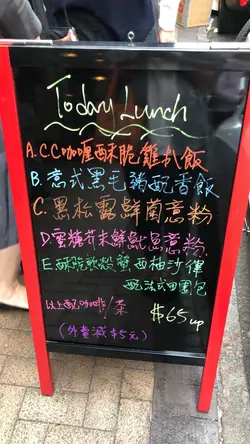 Today Lunch
A.C.C咖喱酥脆雞扒飯
B.意式黑毛豬配香飯
C.黑松露鮮菌意粉
D.蜜糖芥末鮮魷魚意粉
E.酥脆軟殼蟹西柚沙律
配法式田園包
以上配咖啡/茶
$65up
(外賣減$5元)